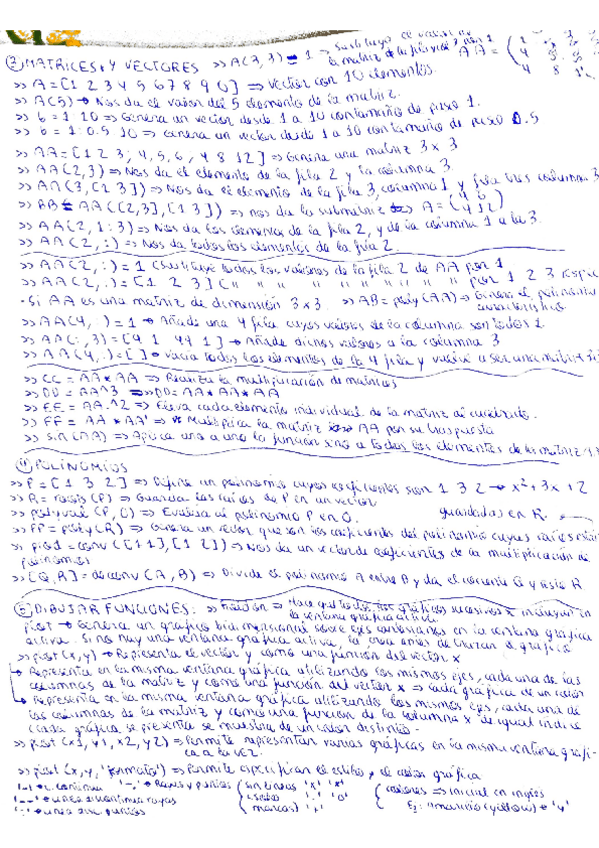 ③ MATRICES Y VECTORES >> A(3,3) = 1 → Sustituye el valor de
la matriz de la fila 3 y 1 AA =
>> A = [1 2 3 4 5 6 7 8 9 0] ⇒ Vector con 10 elementos.
>> A(5) → Nos da el valor del 5 elemento de la matriz.
>> b = 1:10 ⇒ Genera un vector desde 1 a 10 con tamaño de paso 1.
>> b = 1:0.5:10 ⇒ Genera un vector desde 1 a 10 con tamaño de paso 0.5
>> AA = [1 2 3; 4, 5, 6, 4 8 12] ⇒ Genera una matriz 3 x 3
>> AA(2,3) ⇒ Nos da el elemento de la fila 2 y la columna 3
>> AA(3,[1 3]) ⇒ Nos da el elemento de la fila 3, columna 1 y fila tres columna 3
>> BB = AA([2,3],[1 3]) ⇒ nos da la submatriz A = (4 6
4 12)
>> AA(2,1:3) ⇒ Nos da los elementos de la fila 2, y de la columna 1 a la 3.
>> AA(2,:) ⇒ Nos da todos los elementos de la fila 2.
>> AA(2,:) = 1 (Sustituye todos los valores de la fila 2 de AA por 1
>> AA(2,:) = [1 2 3] ( " " " " " " " " por 1 2 3
· Si AA es una matriz de dimensión 3x3. >> AB = poly(AA) ⇒ Genera el polinomio
característico
>> AA(4, ) = 1 → Añade una 4 fila cuyos valores de la columna son todos 1.
>> AA(:,3) = [4 1 44 1] → Añade dichos valores a la columna 3
>> AA(4,:) = [ ] → vacía todos los elementos de la 4 fila y vuelve a ser una matriz
>> CC = AA * AA ⇒ Realiza la multiplicación de matrices
>> DD = AA^3 ⇒ >> DD = AA * AA * AA
>> EE = AA.^2 ⇒ Eleva cada elemento individual de la matriz al cuadrado.
>> FF = AA * AA' ⇒ Multiplica la matriz AA por su traspuesta
>> sin(AA) ⇒ Aplica uno a uno la función seno a todos los elementos de la matriz
④ POLINOMIOS
>> P = [1 3 2] ⇒ Define un polinomio cuyos coeficientes son 1 3 2 → x² + 3x + 2
>> R = roots(P) ⇒ Guarda las raíces de P en un vector
>> polyval(P, 0) ⇒ Evalúa al polinomio P en 0. guardadas en R.
>> PP = poly(R) ⇒ Genera un vector que son los coeficientes del polinomio cuyas raíces están
>> prod = conv([1 1],[1 2]) ⇒ Nos da un vector de coeficientes de la multiplicación de
polinomios
>> [Q,R] = deconv(A,B) ⇒ Divide el polinomio A entre B y da el cociente Q y resto R
⑤ DIBUJAR FUNCIONES: ⇒ Hace que todos los gráficos sucesivos se incluyan en
la ventana gráfica activa.
plot → Genera un gráfico bidimensional sobre ejes cartesianos en la ventana gráfica
activa. Si no hay una ventana gráfica activa, la crea antes de trazar el gráfico
>> plot(x,y) → Representa el vector y como una función del vector x
→ Representa en la misma ventana gráfica utilizando los mismos ejes, cada una de las
columnas de la matriz y como una función del vector x ⇒ cada gráfica de un color
→ Representa en la misma ventana gráfica utilizando los mismos ejes, cada una de
las columnas de la matriz y como una función de la columna x de igual índice
(cada gráfica se presenta se muestra de un color distinto.
>> plot(x1,y1,x2,y2) ⇒ Permite representar varias gráficas en la misma ventana gráfi-
ca a la vez.
>> plot(x,y,'formato') ⇒ Permite especificar el estilo y el color gráfica
'-' → L. continua '-.' → Rayas y puntos (sin líneas 'x' '*' (colores ⇒ inicial en inglés
'--' → línea discontinua rayas '.' 'o' Ej: amarillo (yellow) → 'y'
':' → línea puntos marcas) '+'